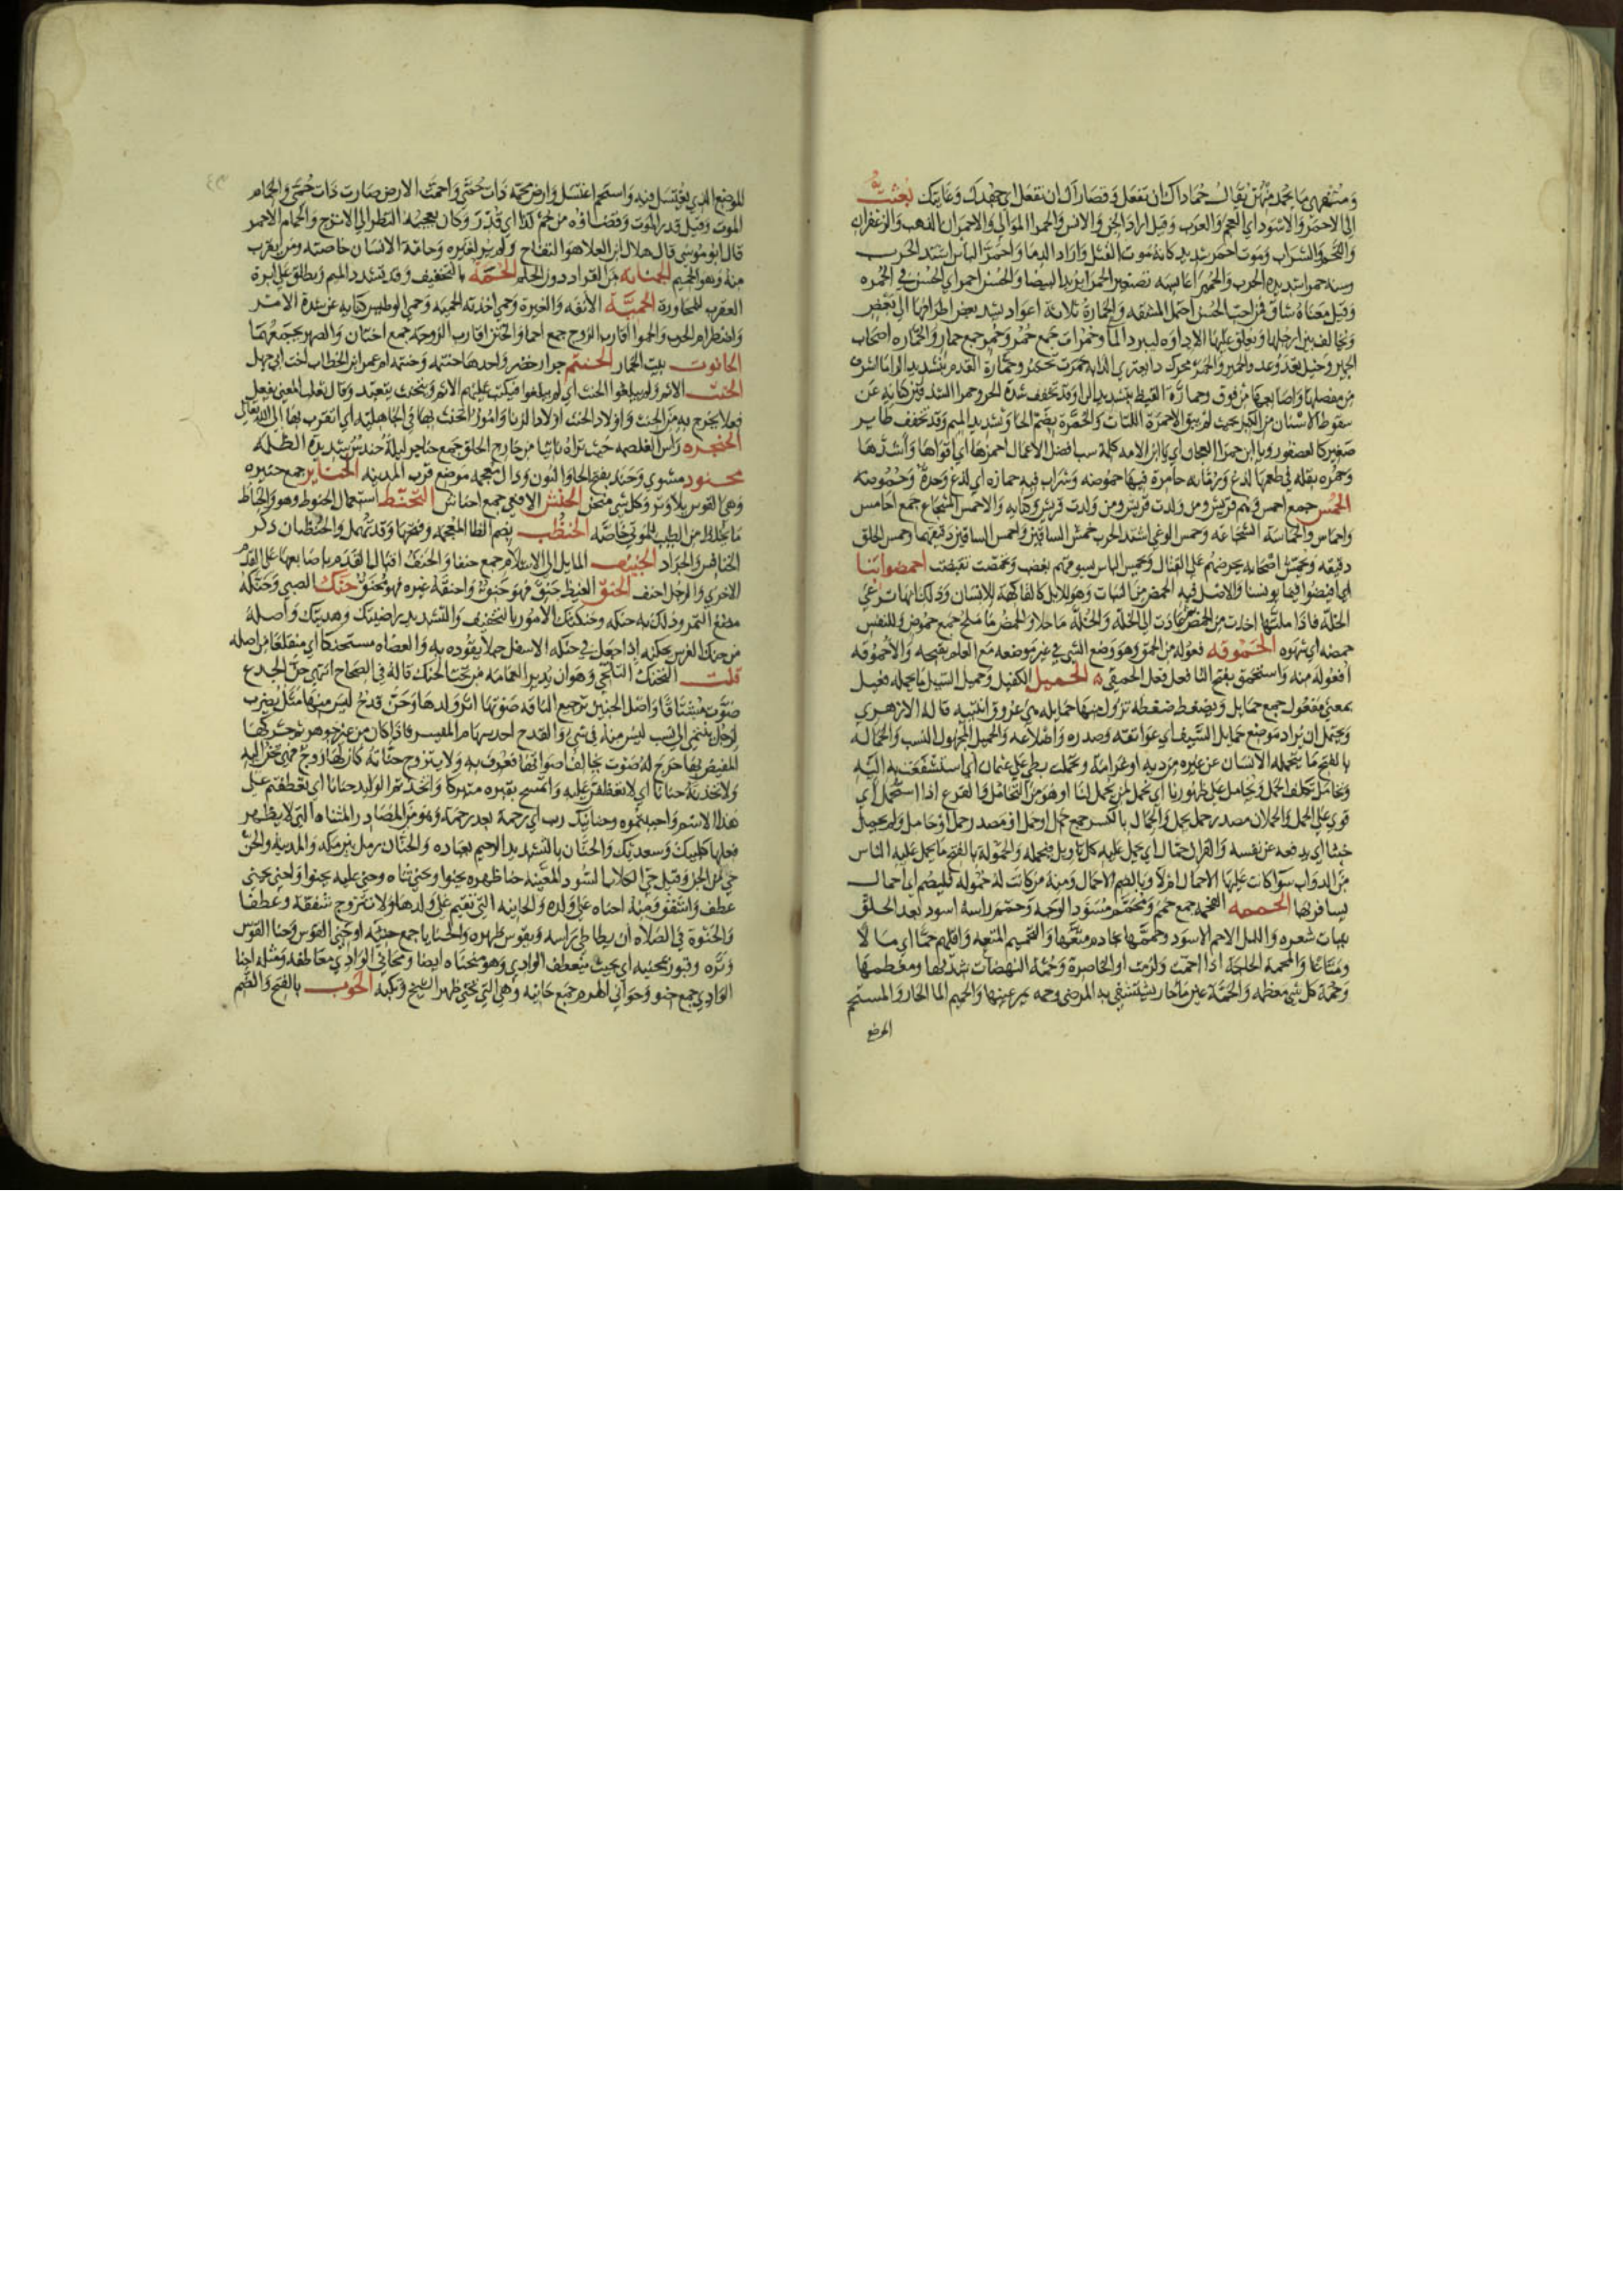 ومنتهى ما يحمد منهن يقال حماداك ان تفعل وقصاراك ان تفعل اي جهدك وغايتك بعثت
الى الاحمر والاسود اي العجم والعرب وقيل اراد الجن والانس والحمرا الموالي والاحمران الذهب والزعفران
واللحم والشراب وموت احمر شديد كانه موت القتل واراد الدما واحمر الباس اشتد الحرب
وسنه حمرا شديده الجدب والحميرا عايشه تصغير الحمرا يريد البيضا والحسن احمر اي الحسن في الحمره
وقيل معناه شاق فمن احب الحسن احتمل المشقه والحمارة ثلاثة اعواد يشد بعض اطرافها الى بعض
ويخالف بين ارجلها وتعلق عليها الاداوه ليبرد الما وحمرات جمع حمر وحمر جمع حمار والحماره اصحاب
الحمير وخيل تعدو عدو الحمير والحمر محرك دا يعتري الدابه حمرت تحمر وحمارة القدم بتشديد الرا ما اشرف
من مفصلها واصابعها من فوق وحمارة القيظ بتشديد الرا وقد تخفف شدة الحر وحمرا الشدقين كنايه عن
سقوط الاسنان من الكبر بحيث لم يبق الا حمرة اللثات والحمرة بضم الحا وتشديد الميم وقد تخفف طاير
صغير كالعصفور ويا ابن حمرا العجان اي يا ابن الامه كلمة سب افضل الاعمال احمزها اي اقواها واشدها
وحمزه بقله في طعمها لذع ورمانه حامزة فيها حموضه وشراب فيه حمازه اي لذع وحدة وحموضه
الحمس جمع احمس وهم قريش ومن ولدت قريش وكنانه والاحمس الشجاع جمع احامس
واحماس والحماسة الشجاعه وحمس الوغى اشتد الحرب حمش الساقين واحمش الساقين دقيقهما وحمش الخلق
دقيقه وحمش اصحابه يحرضهم على القتال احمضوا بنا
اي افيضوا فيما يونسنا والاصل فيه الحمض من النبات وهو للابل كالفاكهة للانسان وذلك انها ترعى
الخلة فاذا ملتها اخذت من الحمض ثم عادت الى الخلة والخلة ما حلا والحمض ما ملح جمع حموض وللنفس
حمضه اي شهوه الحموقه فعوله من الحمق وهو وضع الشي في غير موضعه مع العلم بقبحه والاحموقه
افعوله منه واستحمق بفتح التا فعل فعل الحمقى الحميل الكفيل وحميل السيل ما يحمله فعيل
بمعنى مفعول جمع حمايل ويضغط ضغطه تزول منها حمايله هي عروق انثييه قاله الازهري
ويحتمل ان يراد موضع حمايل السيف اي عواتقه وصدره واضلاعه والحميل المجهول النسب والحمالة
بالفتح ما يتحمله الانسان عن غيره من ديه او غرامة وتحملت بعلي على عثمان اي استشفعت به اليه
وتحامل تكلف الحمل ونحامل على ظهورنا اي نحمل لمن يحمل لنا او هو من التحامل والفرع اذا استحمل اي
قوي على الحمل والحملان مصدر حمل يحمل والحمال بالكسر جمع حمل او حمل او مصدر حمل او حامل ولم يحمل
خبثا اي يدفعه عن نفسه والقران حمال اي يحمل عليه كل تاويل فيحمله والحمولة بالفتح ما يحمل عليه الناس
من الدواب سوا كانت عليها الاحمال ام لا وبالضم الاحمال ومنه من كانت له حمولة فليصم اي احمال
يسافر بها الحممه الفحمه جمع حمم ومحمم مسود الوجه وحمم راسه اسود بعد الحلق
بنبات شعره والليل الاحم الاسود وحممها بخادم متعها والتحميم المتعه واقلهم حما اي مالا
ومتاعا والمحمة الحاجة اذا احمت ولزمت او الحاضرة وحمة النهضات شدتها ومعظمها
وحمة كل شي معظمه والحمة عين ما حار يستشفي به المرضى وحمه حر عينها والحميم الما الحار والمستحم
الموضع
للموضع الذي يغتسل فيه واستحم اغتسل وارض محمة ذات حمى واحمت الارض صارت ذات حمى والحمام
الموت وقيل قدر الموت وقضاوه من حم كذا اي قدر وكان يعجبه النظر الى الاترج والحمام الاحمر
قال ابو موسى قال هلال ابن العلا هو التفاح ولم يره لغيره وحامة الانسان خاصته ومن يقرب
منه وهو الحميم الحمنانه من القراد دون الحلم الحمة بالتخفيف وقد تشدد الميم ويطلق على ابرة
العقرب للمجاورة الحمية الانفه والغيرة وحمي اخذته الحميه وحمي الوطيس كنايه عن شدة الامر
واضطرام الحرب والحموا اقارب الزوج جمع احما والختن اقارب الزوجه جمع اختان والصهر يجمعهما
الحانوت بيت الخمار الحنتم جرار خضر واحدها حنتمه وحنتمه ام عمر ابن الخطاب اخت ابي جهل
الحنث الاثم ولم يبلغوا الحنث اي لم يبلغوا فيكتب عليهم الاثم ويتحنث يتعبد وقال ثعلب المعنى يفعل
فعلا يخرج به من الحنث واولاد الحنث اولاد الزنا وامور اتحنث بها في الجاهلية اي اتقرب بها الى الله تعالى
الحنجره راس الغلصمه حيث تراه ناتيا من خارج الحلق جمع حناجر ليلة حندس شديدة الظلمه
محنوذ مشوي وحنذ بفتح الحا والنون وذال معجمه موضع قرب المدينه الحناير جمع حنيره
وهي القوس بلا وتر وكل شي منحن الحنش الافعى جمع احناش التحنط استعمال الحنوط وهو والحناط
ما يخلط من الطيب للموتى خاصه الحنظب بضم الظا المعجمه وفتحها وقد تهمل والحنظبان ذكر
الخنافس والجراد الحنيف المايل الى الاسلام جمع حنفا والحنف اقبال القدم باصابعها على القدم
الاخرى والرجل احنف الحنق الغيظ حنق فهو حنق واحنقه غيره فهو محنق حنك الصبي وحنكه
مضغ التمر ودلك به حنكه وحنكتك الامور بالتخفيف والتشديد راضتك وهذبتك واصله
من حنك الفرس يحنكه اذا جعل في حنكه الاسفل حبلا يقوده به والعضاه مستحنكا اي منقلعا من اصله
قلت التحنك التلحي وهو ان يدير العمامه من تحت الحنك قاله في الصحاح انتهى حن الجذع
صوت مشتاقا واصل الحنين ترجيع الناقه صوتها اثر ولدها وحن قدح ليس منها مثل يضرب
لرجل ينتمي الى نسب ليس منه في شي والقدح احد سهام الميسر فاذا كان من غير جوهر ثم حركها
المفيض بها خرج له صوت يخالف اصواتها فعرف به ولا يتزوج حنانة كان لها زوج فهي تحن اليه
ولاتخذنه حنانا اي لا تعطفن عليه واتمسح بقبره متبركا واتخذتم الوليد حنانا اي تعطفتم على
هذا الاسم واحببتموه وحنانيك رب اي رحمة بعد رحمة وهو من المصادر المثناه التي لا يظهر
فعلها كلبيك وسعديك والحنان بالتشديد الرحيم بعباده والحنان رمل بين مكه والمدينة والحن
حي من الجن وقيل حي الكلاب السود المعينه حنا ظهره يحنوا ويحني ثناه وحنى عليه يحنوا واحنى يحني
عطف واشفق ومنه احناه على ولده والحانيه التي تقيم على ولدها ولا تتزوج شفقة وعطفا
والحنوة في الصلاه ان يطاطي راسه ويقوس ظهره والحنايا جمع حنيه او حني القوس وحنا القوس
وتره وقبور بمحنيه اي بحيث ينعطف الوادي وهو منحناه ايضا ومحاني الوادي معاطفه ومثله احنا
الوادي جمع حنو وحواني الهرم جمع حانيه وهي التي تحني ظهر الشيخ وتكبه الحوب بالفتح والضم